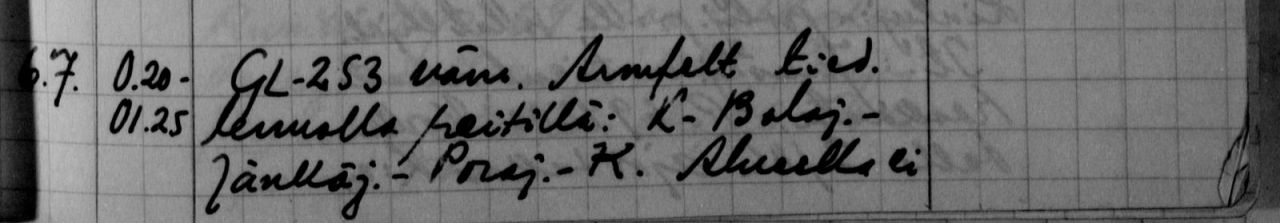 6.7. 0.20- GL-253 vänr. Armfelt tied.
01.25 lennolla reitillä: K- Bolaj.-
Jänkäj.- Poraj.- K. Alueella ei